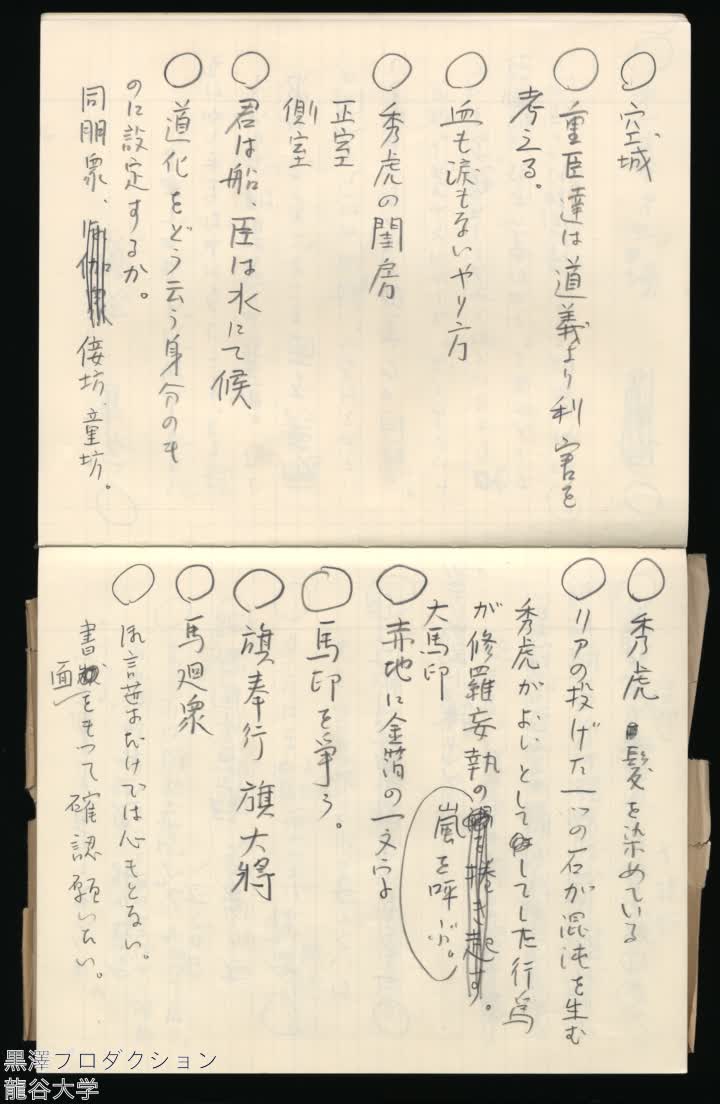 ○空城
○重臣達は道義より利害を
考える。
○血も涙もないやり方
○秀虎の閨房
正室
側室
○君は船、臣は水にて候
○道化をどう云う身分のも
のに設定するか。
同朋衆、倭坊、童坊。
○秀虎 髪を染めている
○リアの投げた一つの石が混沌を生む
秀虎がよいとしてしてした行為
が修羅妄執の嵐を呼ぶ。
大馬印
○赤地に金箔の一文字
○馬印を爭う。
○旗奉行 旗大將
○馬廻衆
○御言葉だけでは心もとない。
書面をもって確認願いたい。
黒澤プロダクション
龍谷大学